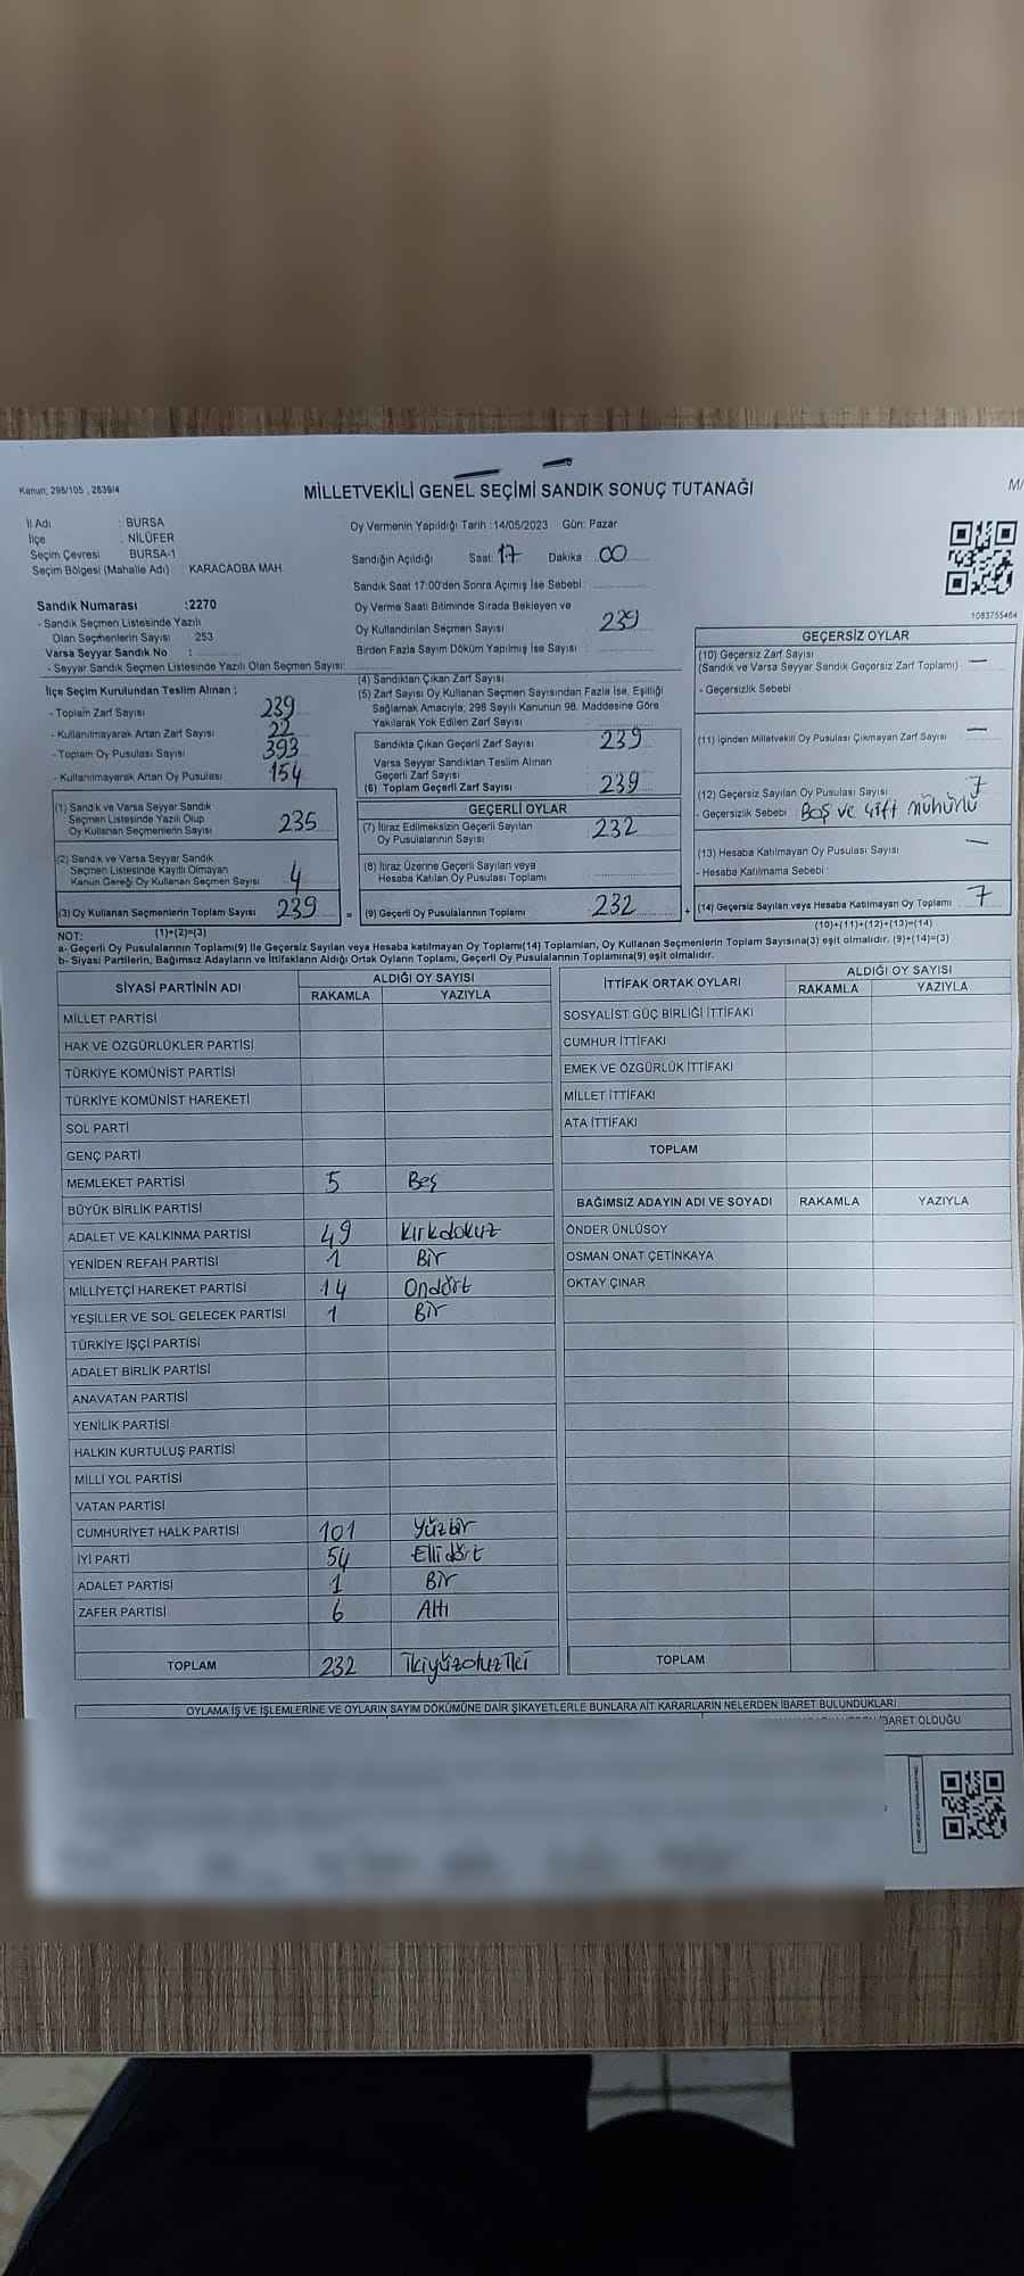 Kanun: 298/105 , 2839/4
MİLLETVEKİLİ GENEL SEÇİMİ SANDIK SONUÇ TUTANAĞI
M/
İl Adı : BURSA
İlçe : NİLÜFER
Seçim Çevresi BURSA-1
Seçim Bölgesi (Mahalle Adı) KARACAOBA MAH.
Sandık Numarası :2270
- Sandık Seçmen Listesinde Yazılı
Olan Seçmenlerin Sayısı 253
Varsa Seyyar Sandık No :
- Seyyar Sandık Seçmen Listesinde Yazılı Olan Seçmen Sayısı:
Oy Vermenin Yapıldığı Tarih :14/05/2023 Gün: Pazar
Sandığın Açıldığı Saat: 17 Dakika 00
Sandık Saat 17:00'den Sonra Açılmış İse Sebebi
Oy Verme Saati Bitiminde Sırada Bekleyen ve
Oy Kullandırılan Seçmen Sayısı 239
Birden Fazla Sayım Döküm Yapılmış İse Sayısı
1083755464
İlçe Seçim Kurulundan Teslim Alınan ;
- Toplam Zarf Sayısı 239
- Kullanılmayarak Artan Zarf Sayısı 22
- Toplam Oy Pusulası Sayısı 393
- Kullanılmayarak Artan Oy Pusulası 154
(1) Sandık ve Varsa Seyyar Sandık
Seçmen Listesinde Yazılı Olup
Oy Kullanan Seçmenlerin Sayısı 235
(2) Sandık ve Varsa Seyyar Sandık
Seçmen Listesinde Kayıtlı Olmayan
Kanun Gereği Oy Kullanan Seçmen Sayısı 4
(3) Oy Kullanan Seçmenlerin Toplam Sayısı 239
(1)+(2)=(3)
(4) Sandıktan Çıkan Zarf Sayısı
(5) Zarf Sayısı Oy Kullanan Seçmen Sayısından Fazla İse, Eşitliği
Sağlamak Amacıyla; 298 Sayılı Kanunun 98. Maddesine Göre
Yakılarak Yok Edilen Zarf Sayısı
Sandıkta Çıkan Geçerli Zarf Sayısı 239
Varsa Seyyar Sandıktan Teslim Alınan
Geçerli Zarf Sayısı
(6) Toplam Geçerli Zarf Sayısı 239
GEÇERLİ OYLAR
(7) İtiraz Edilmeksizin Geçerli Sayılan
Oy Pusulalarının Sayısı 232
(8) İtiraz Üzerine Geçerli Sayılan veya
Hesaba Katılan Oy Pusulası Toplamı
= (9) Geçerli Oy Pusulalarının Toplamı 232
GEÇERSİZ OYLAR
(10) Geçersiz Zarf Sayısı
(Sandık ve Varsa Seyyar Sandık Geçersiz Zarf Toplamı) —
- Geçersizlik Sebebi
(11) İçinden Milletvekili Oy Pusulası Çıkmayan Zarf Sayısı —
(12) Geçersiz Sayılan Oy Pusulası Sayısı 7
- Geçersizlik Sebebi Boş ve çift mühürlü
(13) Hesaba Katılmayan Oy Pusulası Sayısı —
- Hesaba Katılmama Sebebi :
+ (14) Geçersiz Sayılan veya Hesaba Katılmayan Oy Toplamı 7
(10)+(11)+(12)+(13)=(14)
NOT:
a- Geçerli Oy Pusulalarının Toplamı(9) İle Geçersiz Sayılan veya Hesaba katılmayan Oy Toplamı(14) Toplamları, Oy Kullanan Seçmenlerin Toplam Sayısına(3) eşit olmalıdır. (9)+(14)=(3)
b- Siyasi Partilerin, Bağımsız Adayların ve İttifakların Aldığı Ortak Oyların Toplamı, Geçerli Oy Pusulalarının Toplamına(9) eşit olmalıdır.
SİYASİ PARTİNİN ADI ALDIĞI OY SAYISI
RAKAMLA YAZIYLA
MİLLET PARTİSİ
HAK VE ÖZGÜRLÜKLER PARTİSİ
TÜRKİYE KOMÜNİST PARTİSİ
TÜRKİYE KOMÜNİST HAREKETİ
SOL PARTİ
GENÇ PARTİ
MEMLEKET PARTİSİ 5 Beş
BÜYÜK BİRLİK PARTİSİ
ADALET VE KALKINMA PARTİSİ 49 Kırkdokuz
YENİDEN REFAH PARTİSİ 1 Bir
MİLLİYETÇİ HAREKET PARTİSİ 14 Ondört
YEŞİLLER VE SOL GELECEK PARTİSİ 1 Bir
TÜRKİYE İŞÇİ PARTİSİ
ADALET BİRLİK PARTİSİ
ANAVATAN PARTİSİ
YENİLİK PARTİSİ
HALKIN KURTULUŞ PARTİSİ
MİLLİ YOL PARTİSİ
VATAN PARTİSİ
CUMHURİYET HALK PARTİSİ 101 Yüzbir
İYİ PARTİ 54 Ellidört
ADALET PARTİSİ 1 Bir
ZAFER PARTİSİ 6 Altı
TOPLAM 232 İkiyüzotuziki
İTTİFAK ORTAK OYLARI ALDIĞI OY SAYISI
RAKAMLA YAZIYLA
SOSYALİST GÜÇ BİRLİĞİ İTTİFAKI
CUMHUR İTTİFAKI
EMEK VE ÖZGÜRLÜK İTTİFAKI
MİLLET İTTİFAKI
ATA İTTİFAKI
TOPLAM
BAĞIMSIZ ADAYIN ADI VE SOYADI RAKAMLA YAZIYLA
ÖNDER ÜNLÜSOY
OSMAN ONAT ÇETİNKAYA
OKTAY ÇINAR
TOPLAM
OYLAMA İŞ VE İŞLEMLERİNE VE OYLARIN SAYIM DÖKÜMÜNE DAİR ŞİKAYETLERLE BUNLARA AİT KARARLARIN NELERDEN İBARET BULUNDUKLARI
BARET OLDUĞU